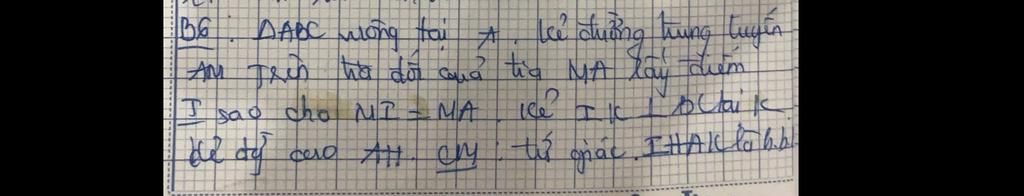 B6: ΔABC vuông tại A. Kẻ đường trung tuyến
AM Trên tia đối của tia MA lấy điểm
I sao cho MI = MA. Kẻ IK ⊥ BC tại K
Kẻ đg cao AH. CM: tứ giác IHAK là h.b.h